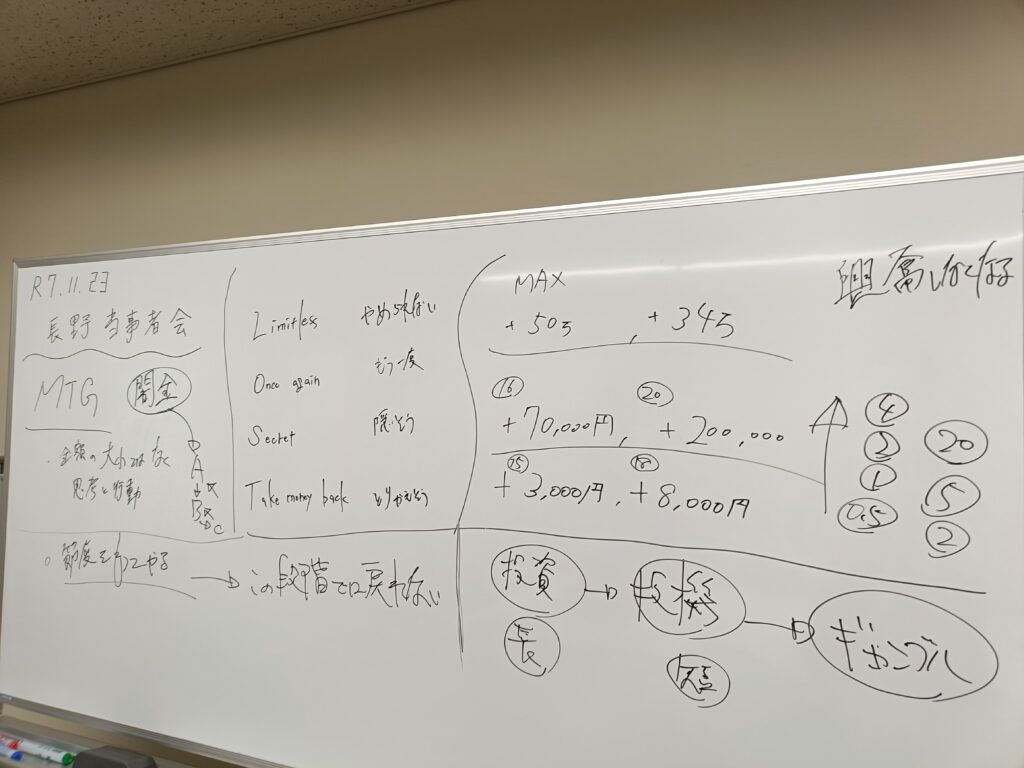 R7.11.23
長野 当事者会
MTG 闇金
・金額の大小ではなく
思考と行動
A
B
C
Limitless やめられない
Once again もう一度
Secret 隠そう
Take money back とりかえそう
MAX
+50万, +34万
⑯ ⑳
+70,000円, +200,000
⑮ ⑱
+3,000円, +8,000円
興奮しなくなる
④
②
①
0.5
⑳
⑤
②
○ 節度をもってやる → この段階では戻れない
投資 → 投機 → ギャンブル
長
短